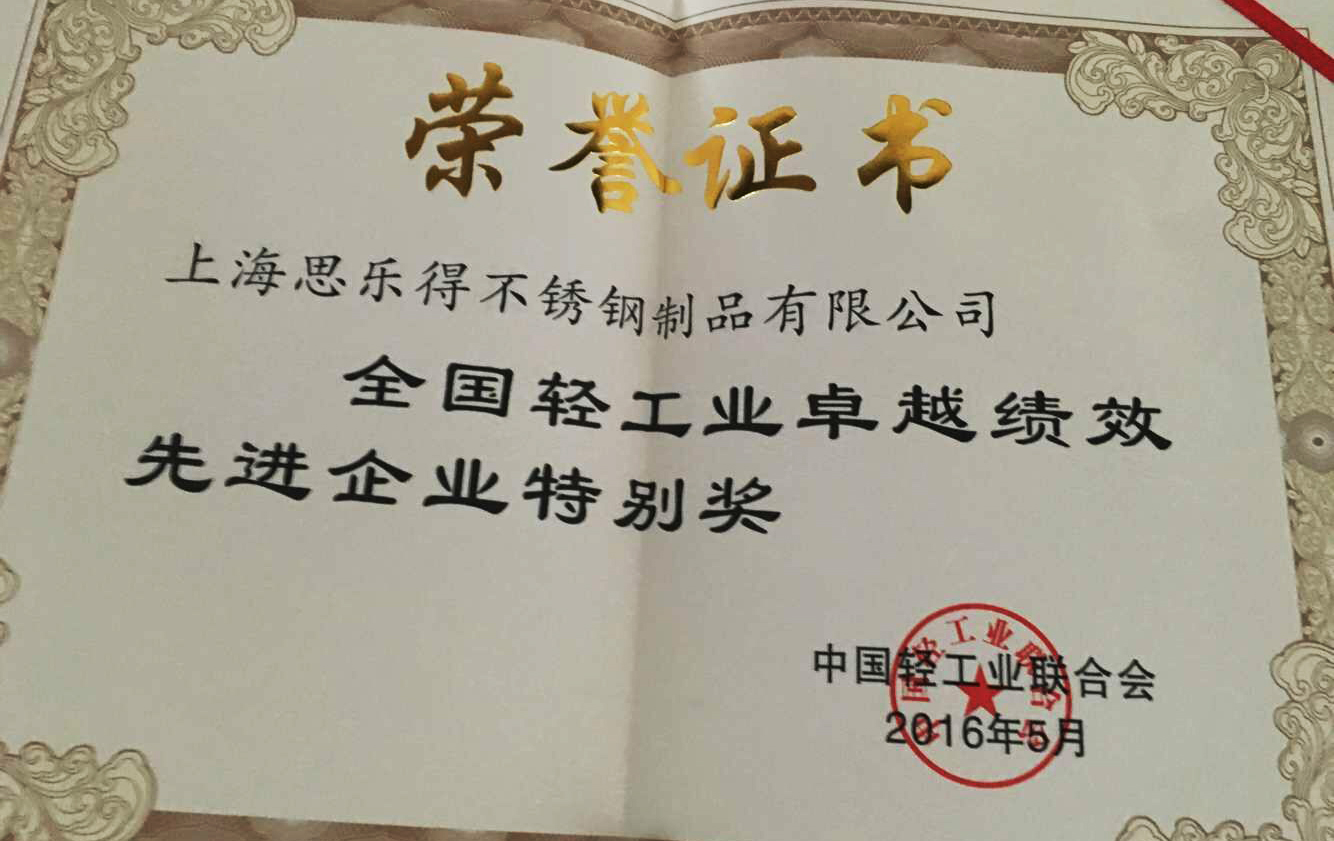 荣誉证书
上海思乐得不锈钢制品有限公司
全国轻工业卓越绩效
先进企业特别奖
中国轻工业联合会
2016年5月
中国轻工业联合会